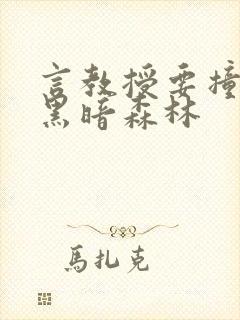 言教授要撞
黑暗森林
馬扎克